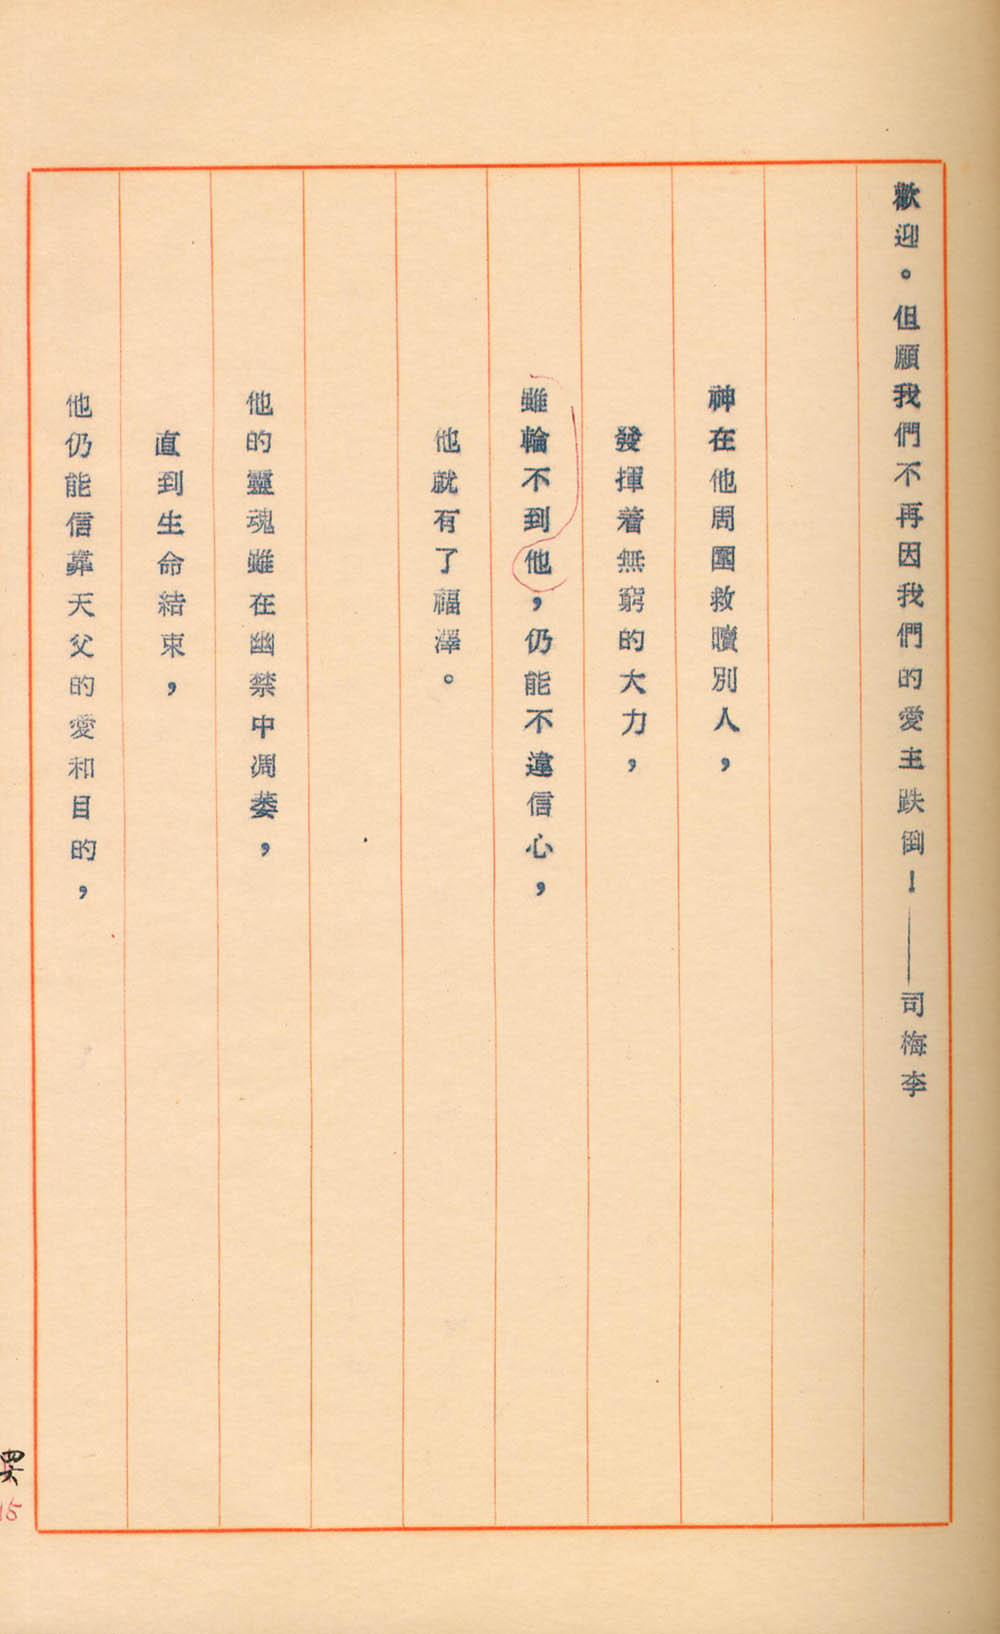 歡迎。但願我們不再因我們的愛主跌倒！——司梅李
神在他周圍救贖別人，
發揮着無窮的大力，
雖輪不到他，仍能不違信心，
他就有了福澤。
他的靈魂雖在幽禁中凋萎，
直到生命結束，
他仍能信靠天父的愛和目的，
15